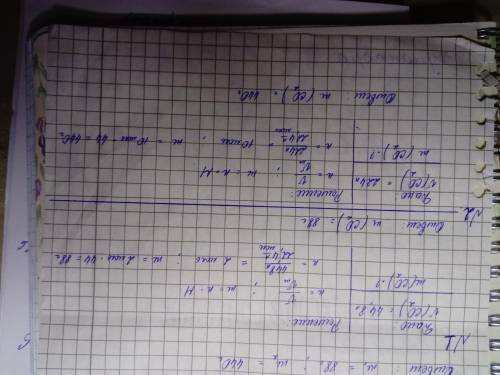 Ответ: m₁ = 88г ; m₂ = 440г
N1
Дано
V(CO₂) = 44,8л
m(CO₂) - ?
Решение:
n = V/Vm ; m = n · M
n = 44,8л / 22,4л/моль = 2 моль ; m = 2 моль · 44 = 88г
Ответ: m(CO₂) = 88г
N2
Дано
V(CO₂) = 224л
m(CO₂) - ?
Решение:
n = V/Vm ; m = n · M
n = 224л / 22,4л/моль = 10 моль ; m = 10 моль · 44 = 440г
Ответ: m(CO₂) = 440г